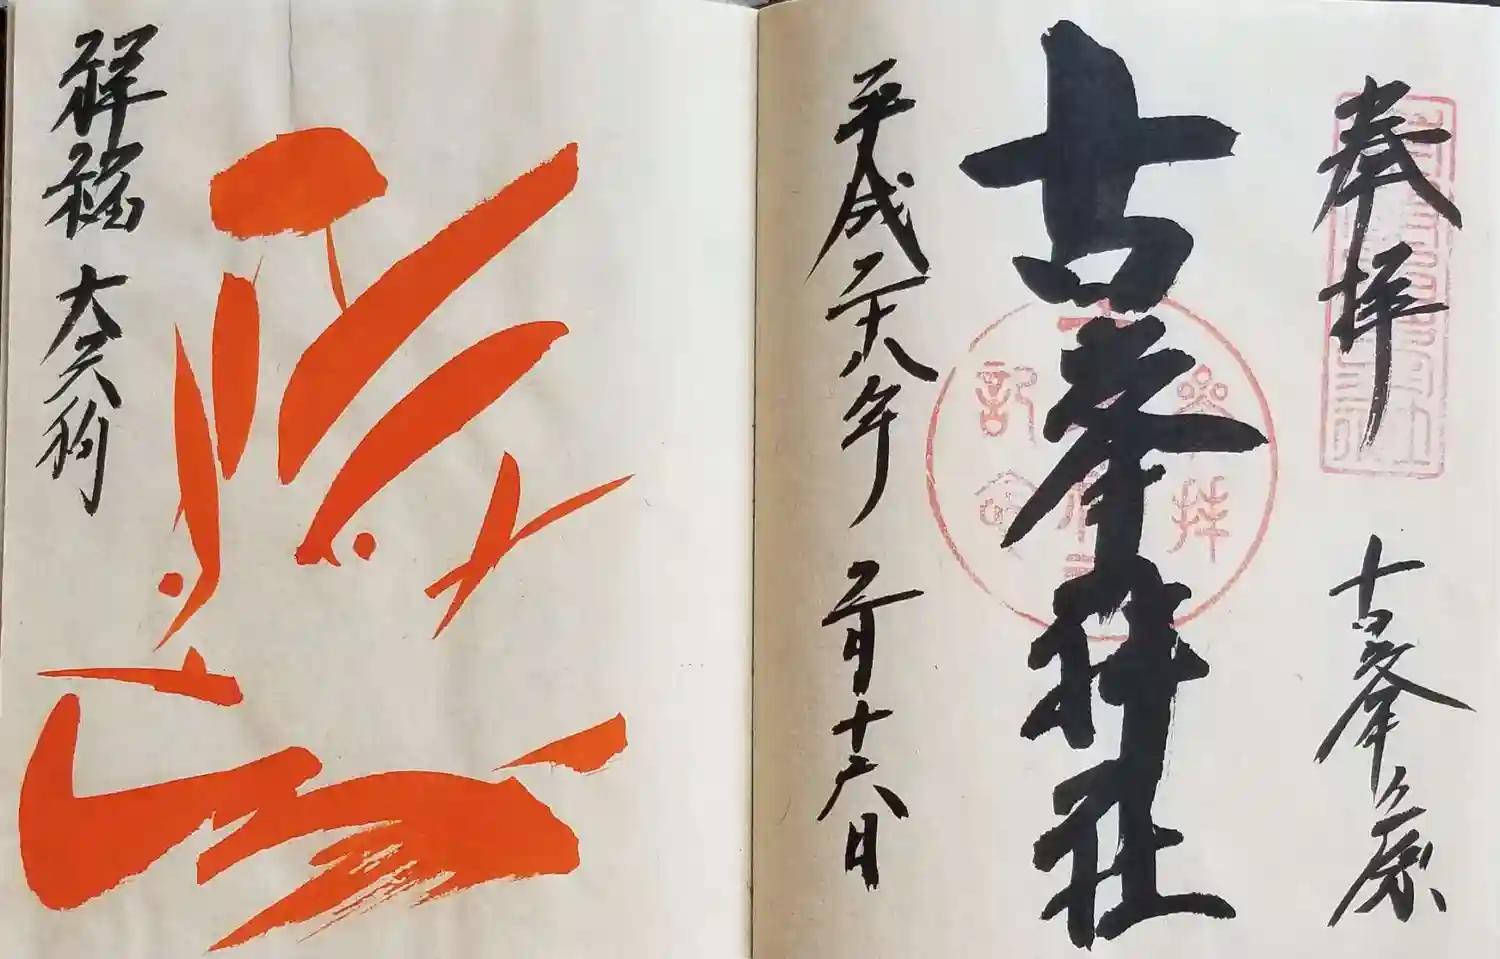 奉拝
古峯ヶ原
古峯神社
参拝
記念
平成二十八年 二月十六日
祥福 大天狗